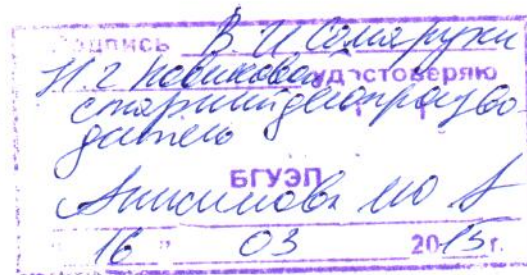 Подпись В.И. Самаруки
Н.Г. Новикова удостоверяю
старший делопроизво-
дитель
БГУЭП
Анисимова Ю А
" 16 " 03 2015 г.